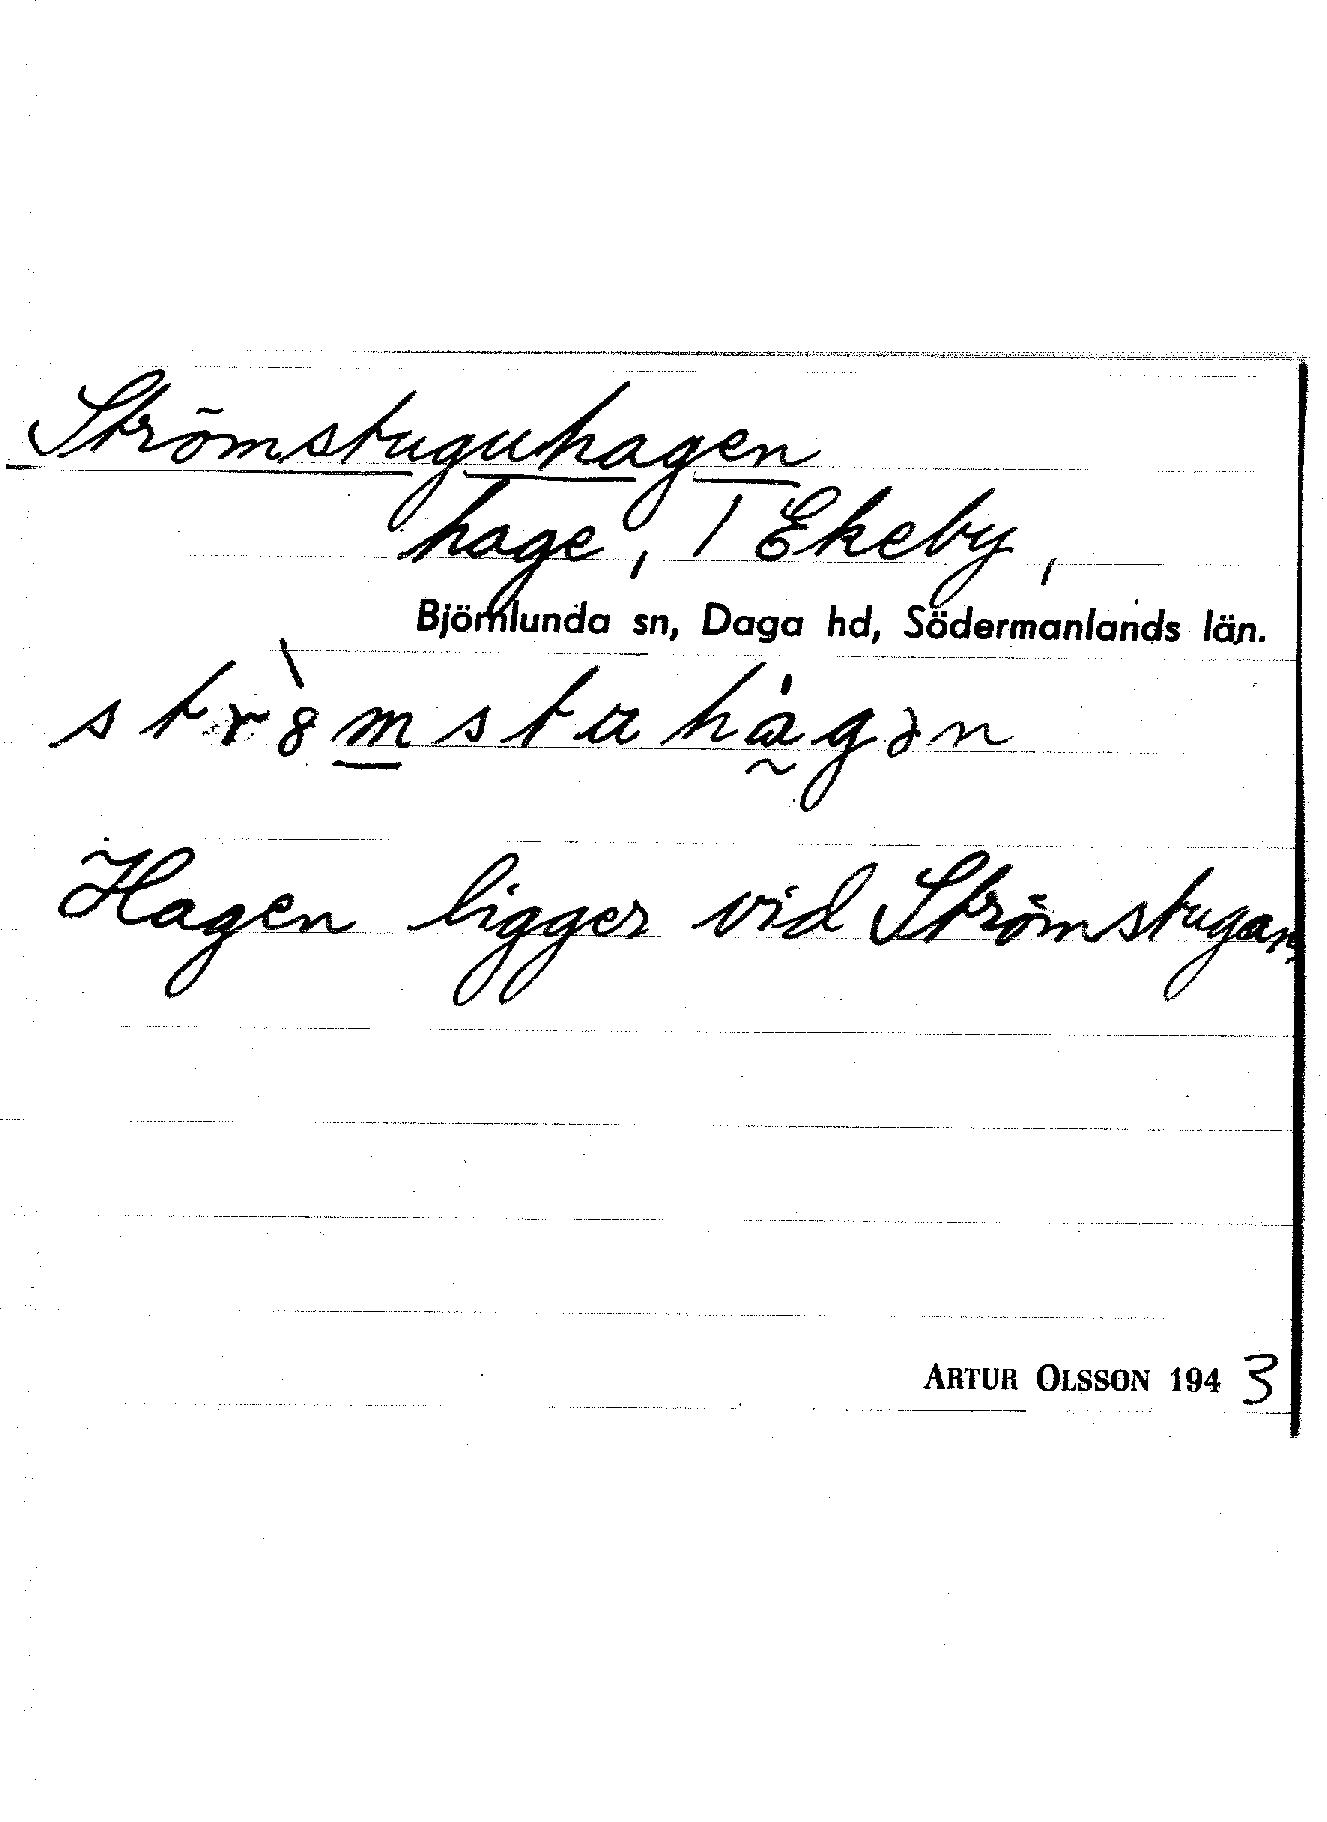 Strömstuguhagen
hage, 1 Ekeby,
Björnlunda sn, Daga hd, Södermanlands län.
strò̈mstahágən
Hagen ligger vid Strömstugan,
ARTUR OLSSON 1943